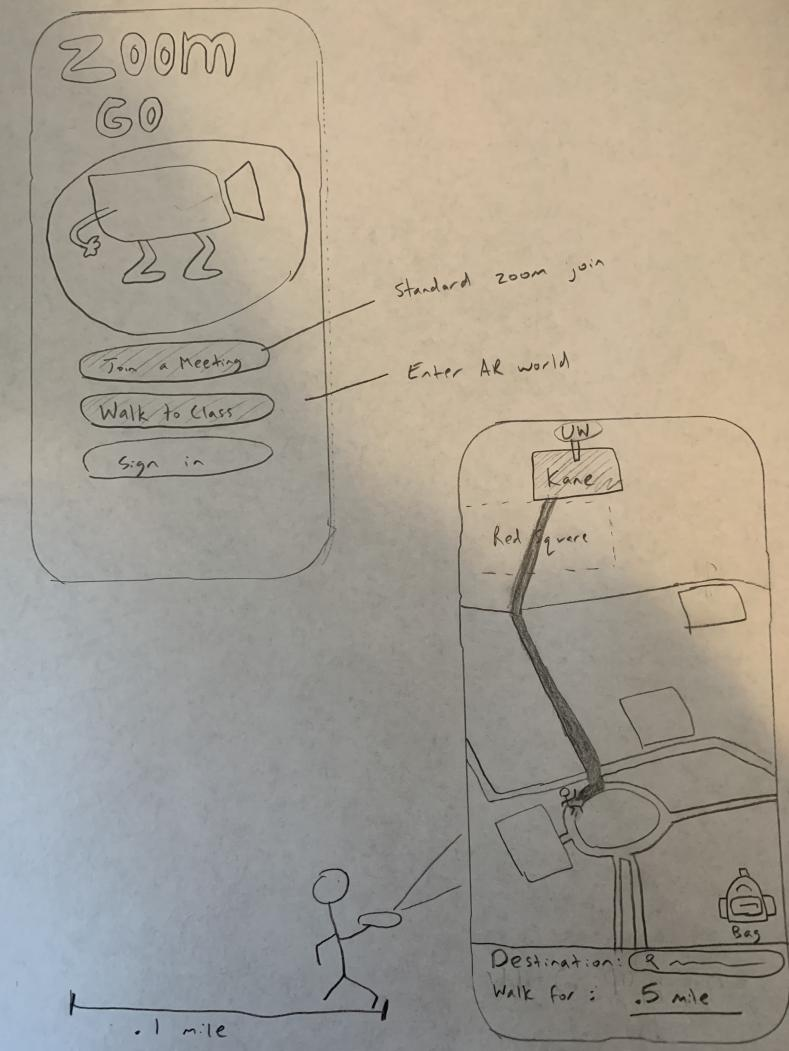 ZOOM
GO
Join a Meeting
Walk to Class
Sign in
Standard zoom join
Enter AR world
UW
Kane
Red Square
Bag
Destination:
Walk for : .5 mile
.1 mile